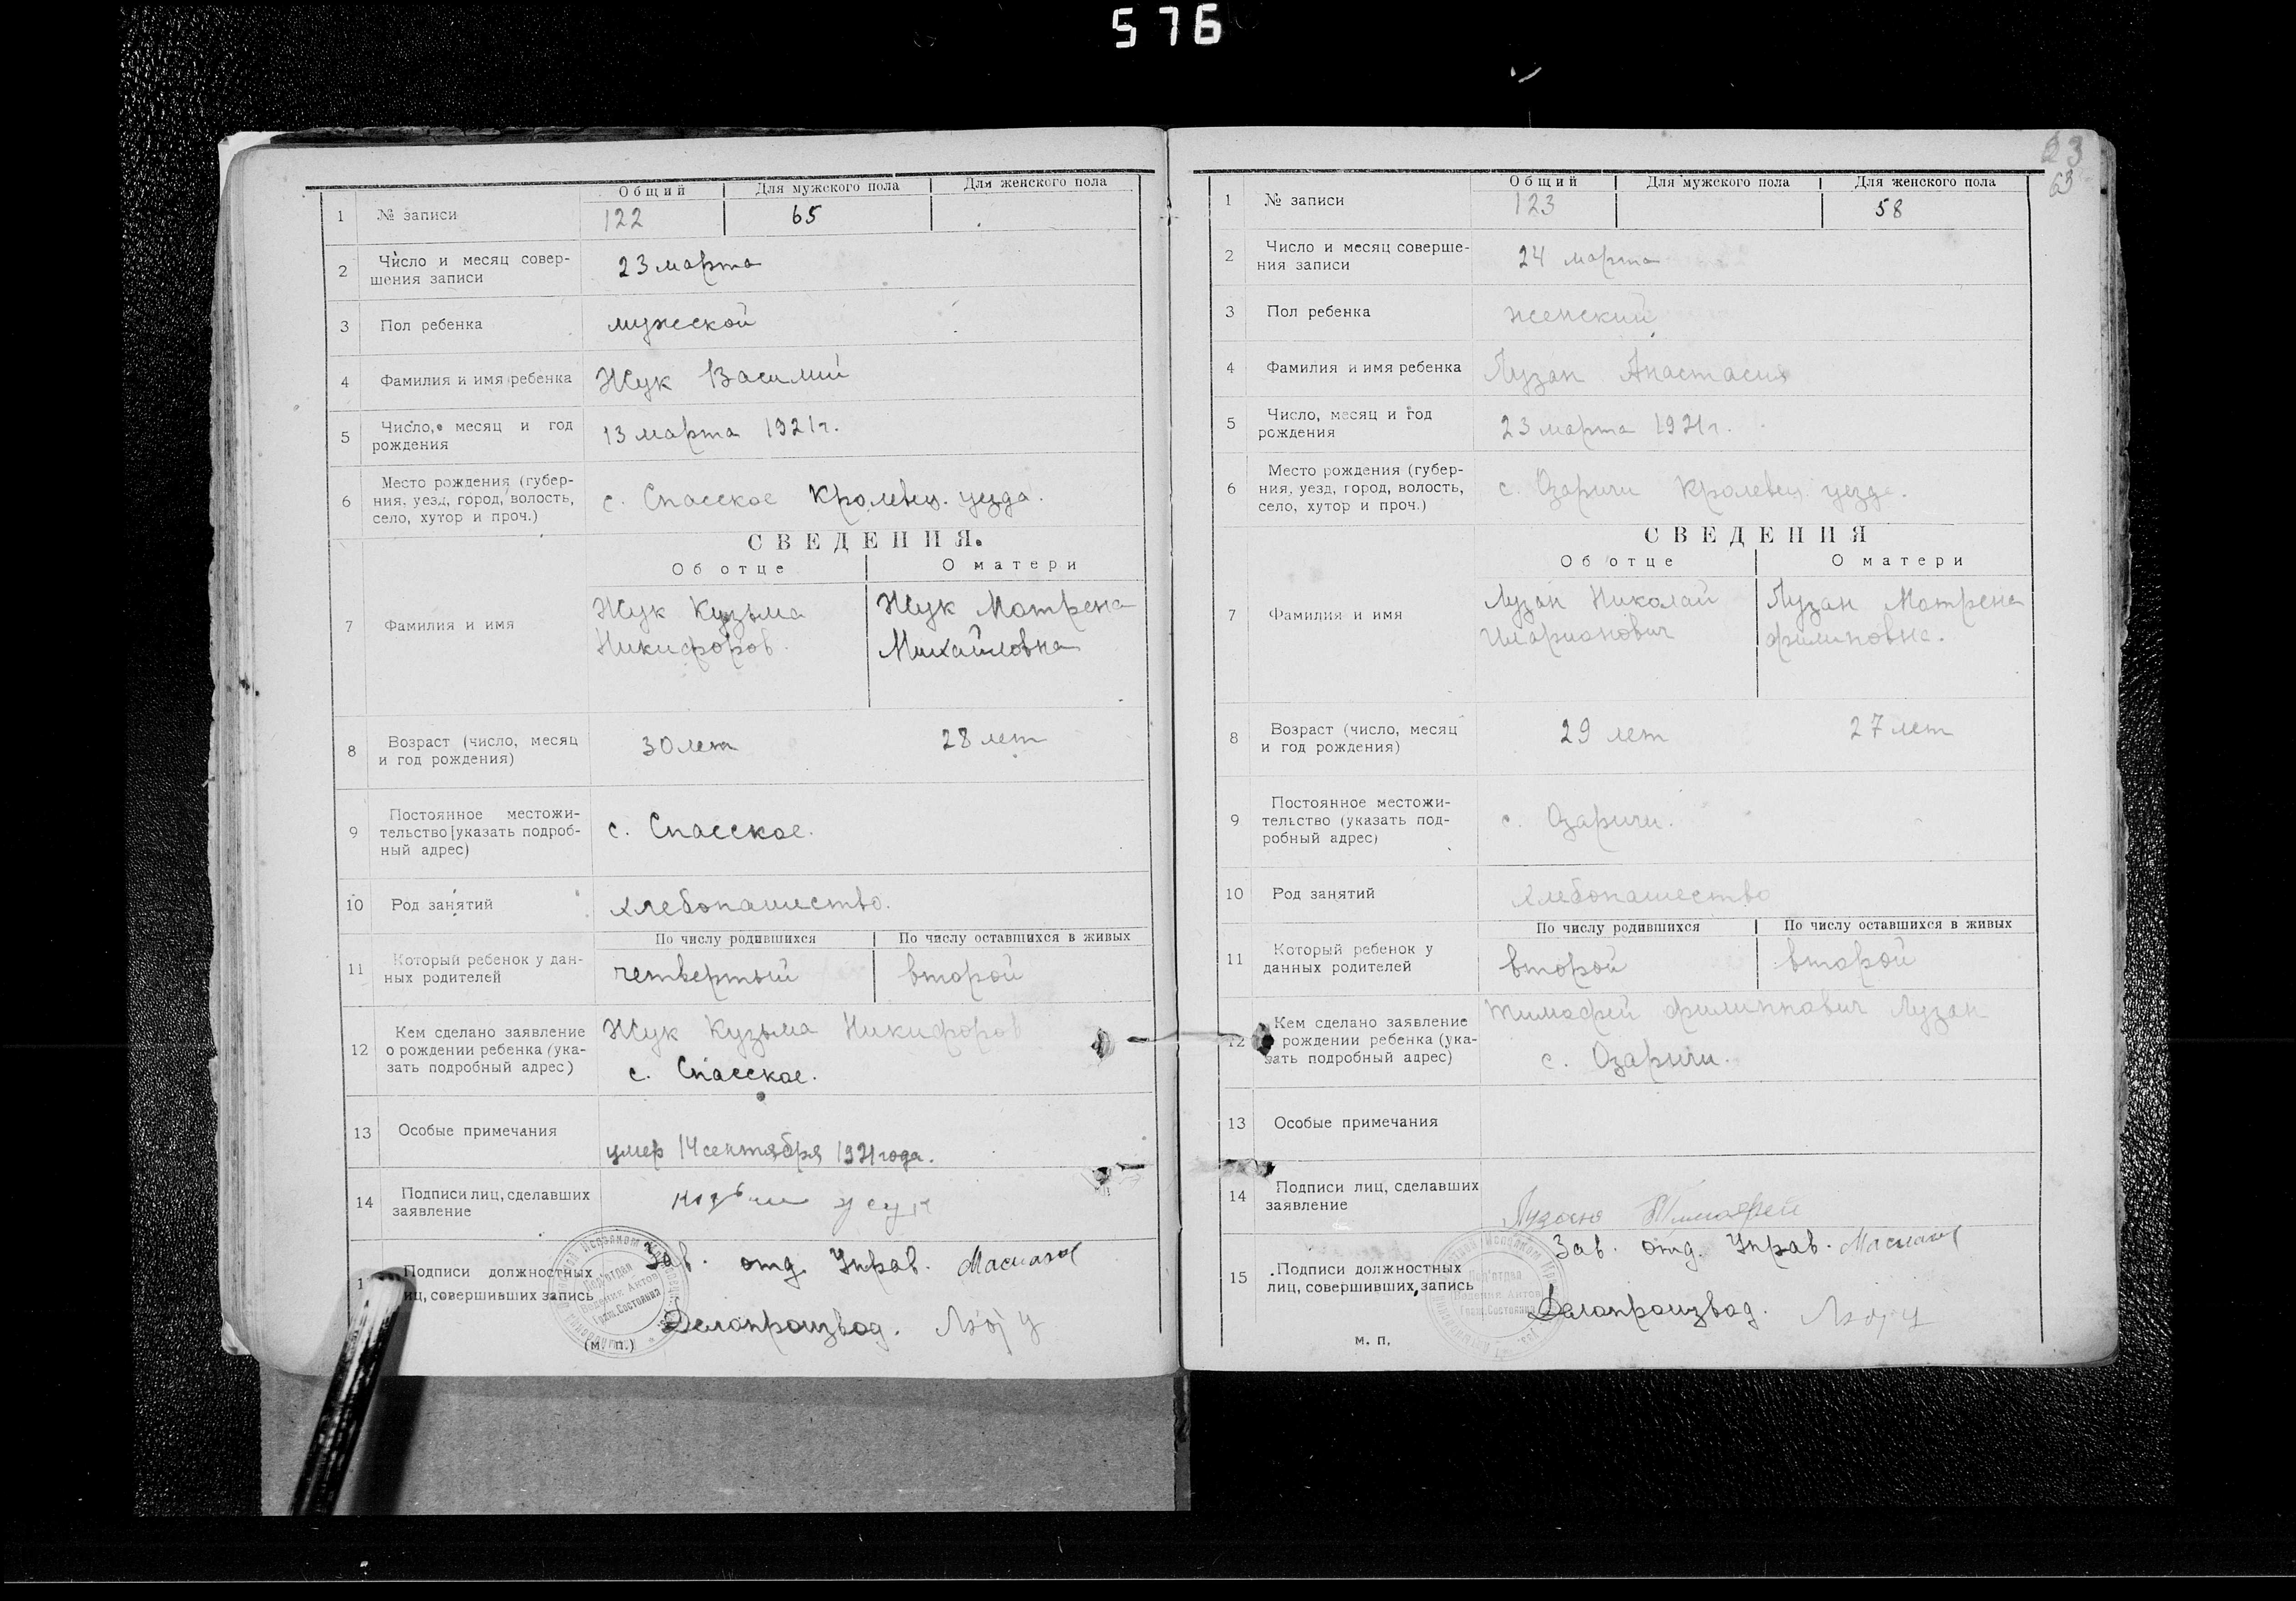 576
Общий Для мужского пола Для женского пола
1 № записи 122 65
2 Число и месяц совер-
шения записи 23 марта
3 Пол ребенка мужской
4 Фамилия и имя ребенка Жук Василий
5 Число, месяц и год
рождения 13 марта 1921 г.
6 Место рождения (губер-
ния, уезд, город, волость,
село, хутор и проч.) с. Спасское Кролевец. уезда.
СВЕДЕНИЯ.
Об отце О матери
7 Фамилия и имя Жук Кузьма Жук Матрена
Никифоров. Михайловна
8 Возраст (число, месяц
и год рождения) 30 лет 28 лет
9 Постоянное местожи-
тельство [указать подроб-
ный адрес) с. Спасское.
10 Род занятий хлебопашество.
По числу родившихся По числу оставшихся в живых
11 Который ребенок у дан-
ных родителей четвертый второй
12 Кем сделано заявление
о рождении ребенка (ука-
зать подробный адрес) Жук Кузьма Никифоров
с. Спасское.
13 Особые примечания
умер 14 сентября 1921 года.
14 Подписи лиц, сделавших
заявление
1 Подписи должностных
иц, совершивших запись Зав. отд. Управ.
Делопроизвод.
(м. п.)
23
63
Общий Для мужского пола Для женского пола
1 № записи 123 58
2 Число и месяц соверше-
ния записи 24 марта
3 Пол ребенка женский
4 Фамилия и имя ребенка Лузан Анастасия
5 Число, месяц и год
рождения 23 марта 1921 г.
6 Место рождения (губер-
ния, уезд, город, волость,
село, хутор и проч.) с. Озаричи Кролевец. уезда.
СВЕДЕНИЯ
Об отце О матери
7 Фамилия и имя Лузан Николай Лузан Матрена
Иларионович Филиповна.
8 Возраст (число, месяц
и год рождения) 29 лет 27 лет
9 Постоянное местожи-
тельство (указать под-
робный адрес) с. Озаричи.
10 Род занятий хлебопашество
По числу родившихся По числу оставшихся в живых
11 Который ребенок у
данных родителей второй второй
12 Кем сделано заявление
рождении ребенка (ука-
зать подробный адрес) Тимофей Филиппович Лузан
с. Озаричи.
13 Особые примечания
14 Подписи лиц, сделавших
заявление Тимофей
15 Подписи должностных
лиц, совершивших запись Зав. отд. Управ.
Делопроизвод.
м. п.